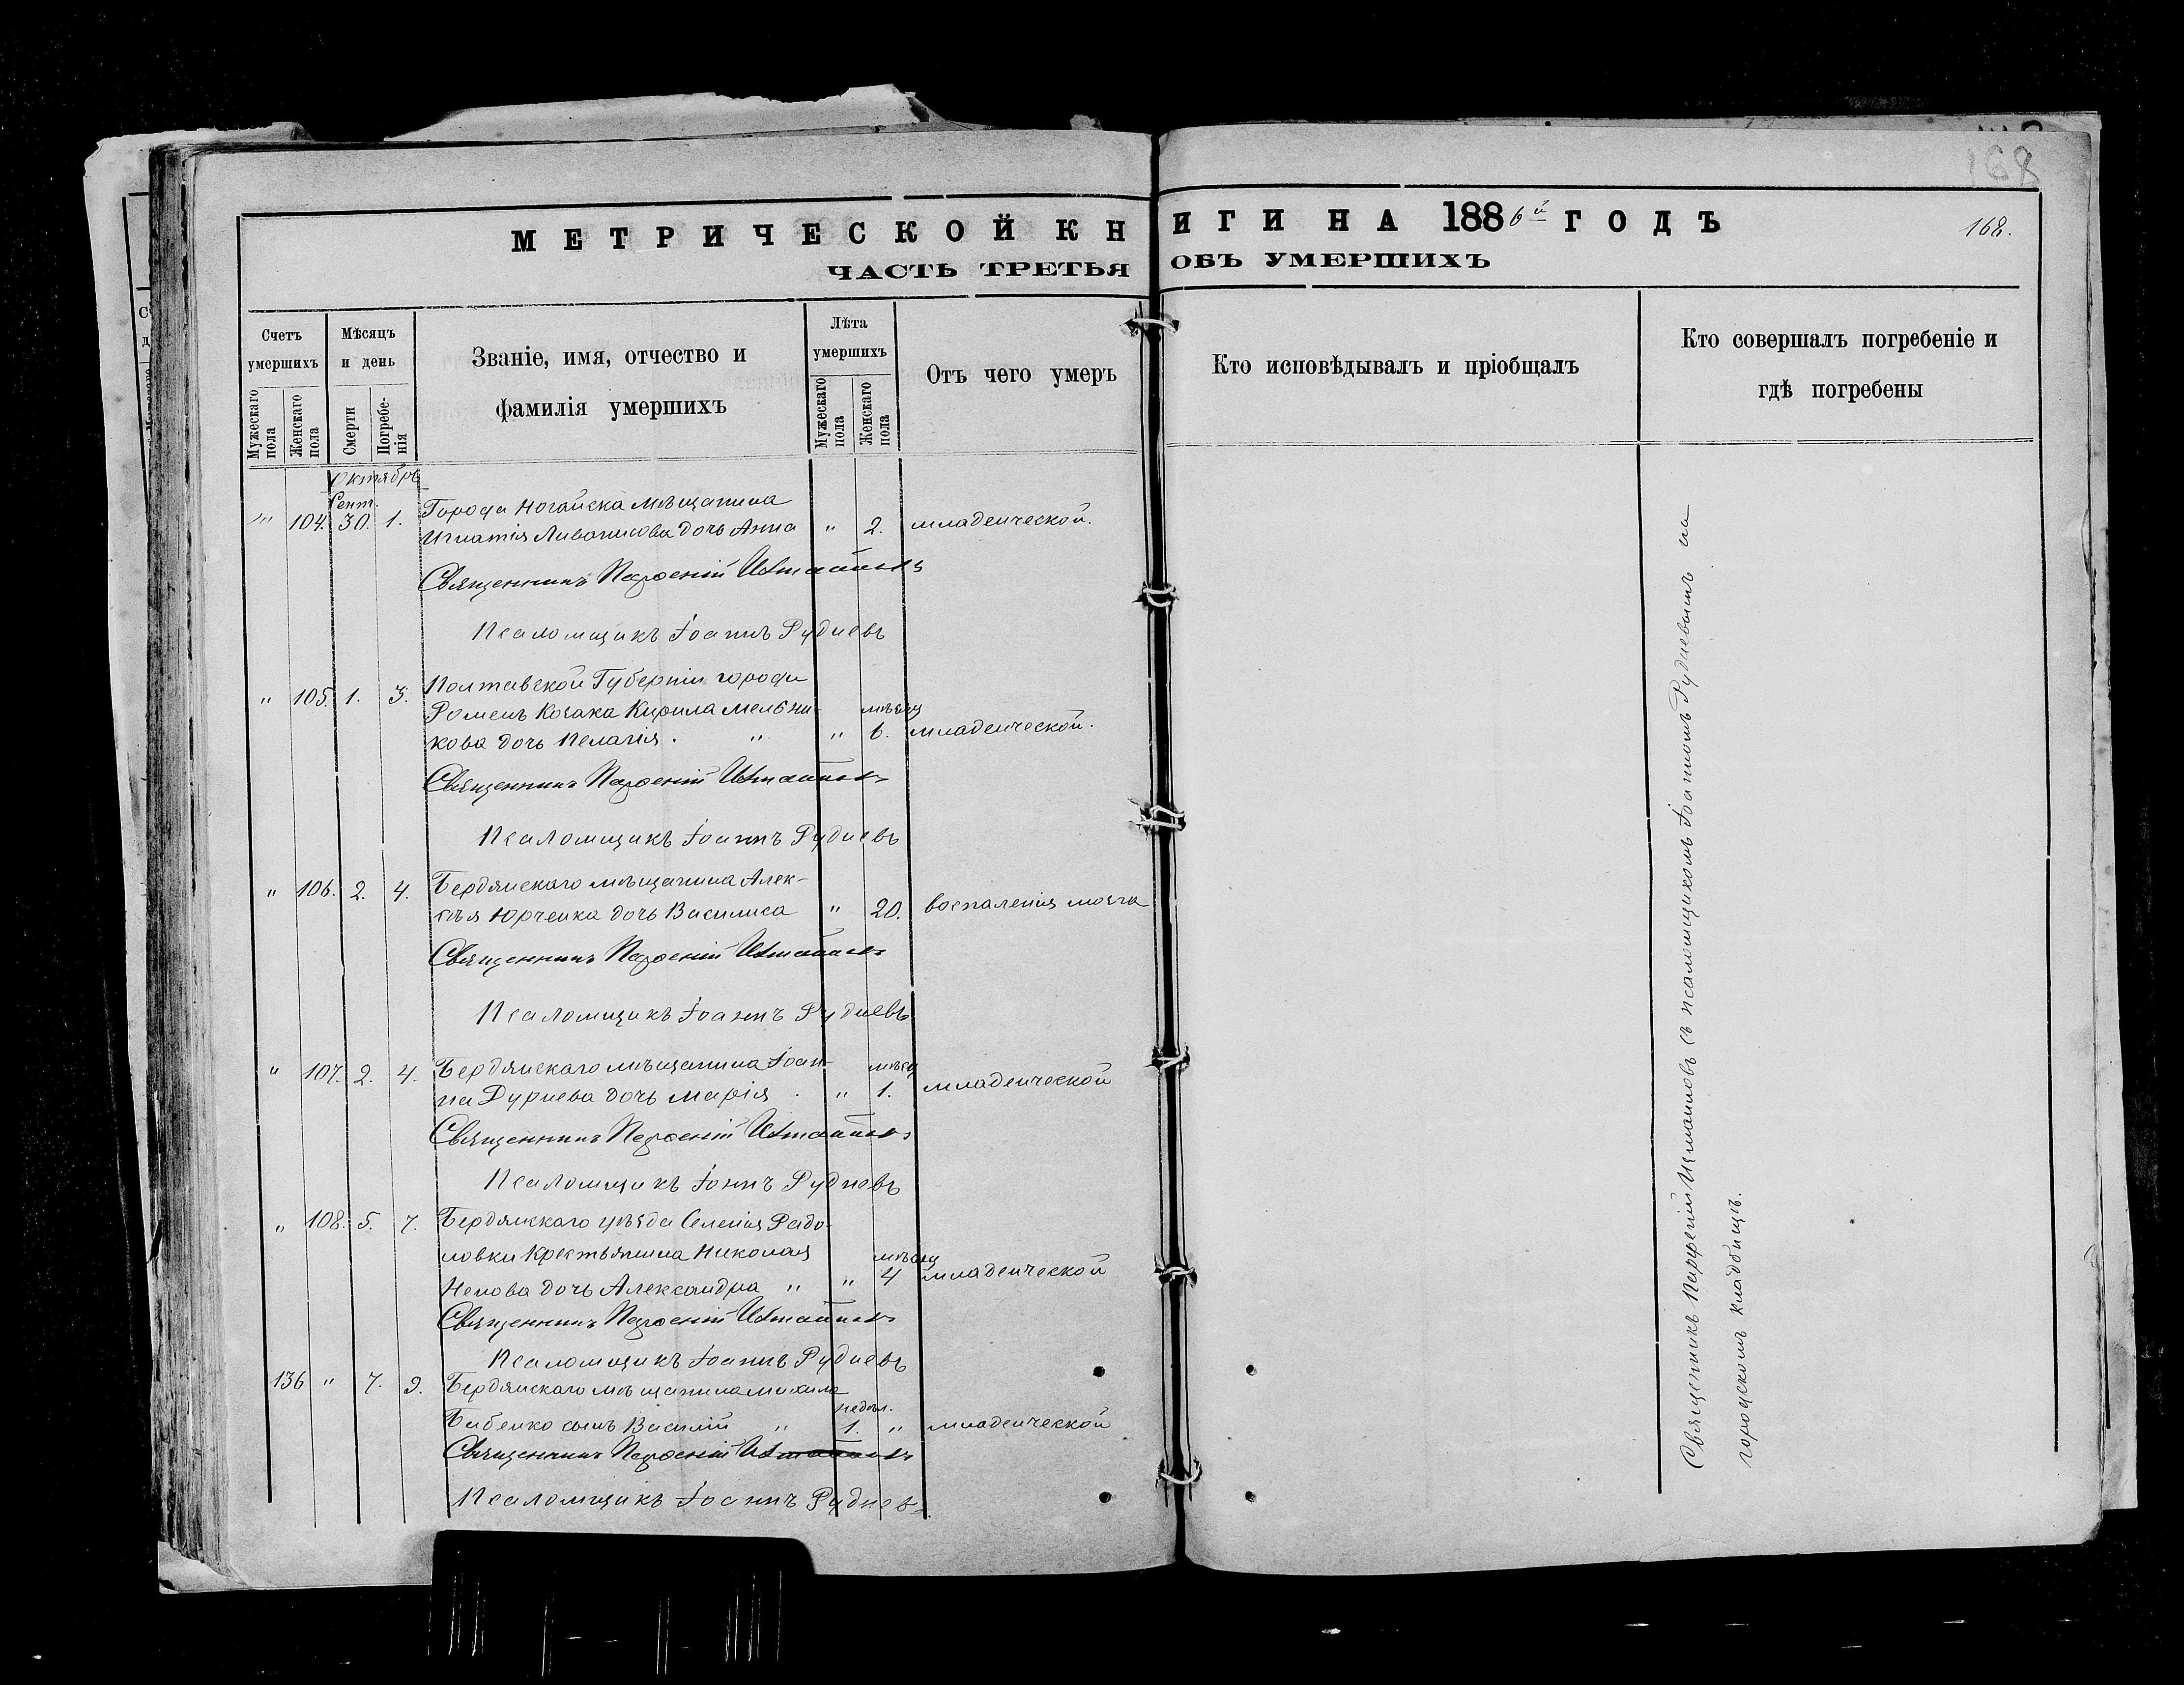 168
МЕТРИЧЕСКОЙ КНИГИ НА 1886й ГОДЪ
168.
ЧАСТЬ ТРЕТЬЯ ОБЪ УМЕРШИХЪ
Счетъ умершихъ
Мужескаго пола
Женскаго пола
Мѣсяцъ и день
Смерти
Погребенія
Званіе, имя, отчество и
фамилія умершихъ
Лѣта умершихъ
Мужескаго пола
Женскаго пола
Отъ чего умеръ
Кто исповѣдывалъ и пріобщалъ
Кто совершалъ погребеніе и
гдѣ погребены
Октябрь
Сент.
Города Ногайска мѣщанина
" 104. 30. 1. Игнатія дочь Анна " 2. младенческой.
Священникъ Парѳеній
Псаломщикъ Іоаннъ Рудневъ
Полтавской Губерніи города
" 105. 1. 3. Ромень Козака Кирила Мельни- мѣсяц
кова дочь Пелагія. " " 6. младенческой.
Священникъ Парѳеній
Псаломщикъ Іоаннъ Рудневъ
" 106. 2. 4. Бердянскаго мѣщанина Алек-
сѣя Юрченка дочь Василиса " 20. воспаленія мозга
Священникъ Парѳеній
Псаломщикъ Іоаннъ Рудневъ
" 107. 2. 4. Бердянскаго мѣщанина Іоан- мѣсяц
на Дурнева дочь Марія . " 1. младенческой
Священникъ Парѳеній
Псаломщикъ Іоннъ Рудневъ
" 108. 5. 7. Бердянскаго уѣзда Селенія Радо-
ловки Крестьянина Николая мѣсяц
дочь Александра " " 4 младенческой
Священникъ Парѳеній
Псаломщикъ Іоаннъ Рудневъ
136 " 7. 9. Бердянскаго мѣщанина Михаила
недѣл.
Бабенко сынъ Василій " 1. " младенческой
Священникъ Парѳеній
Псаломщикъ Іоаннъ Рудневъ
Священникъ Парѳеній съ псаломщикомъ Іоанномъ Рудневымъ на
городскомъ кладбищѣ.